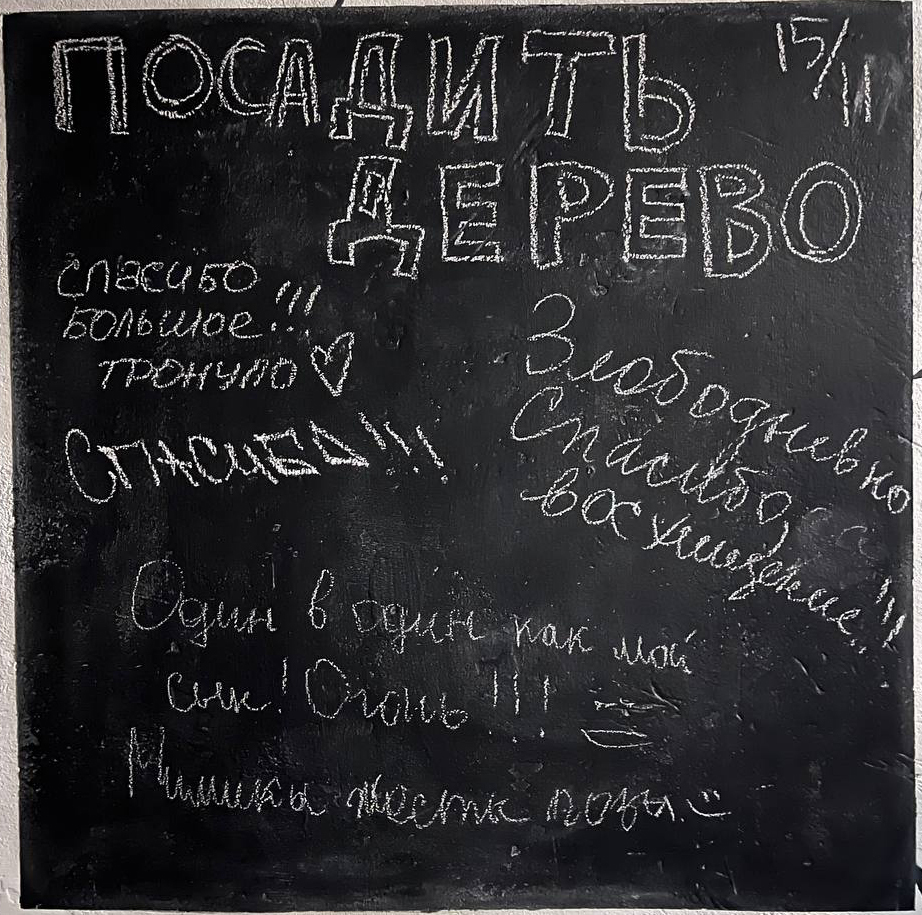 ПОСАДИТЬ
15/11
ДЕРЕВО
СПАСИБО
БОЛЬШОЕ!!!
ТРОНУЛО♡
СПАСИБО!!!
Злободневно
Спасибо,
восхищение!!!
Один в один как мой
сын! Огонь!!!
Мимика жесты позы